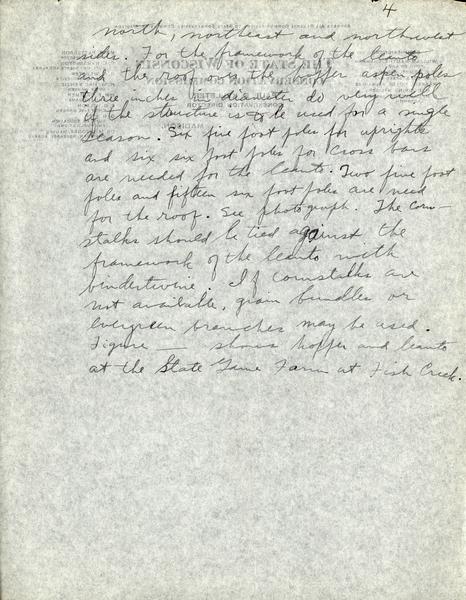 4
north, northeast and northwest
sides. For the framework of the leanto
and the roof over the hopper aspen poles
three inches in diameter do very well
if the structure is to be used for a single
season. Six five foot poles for uprights
and six six foot poles for cross bars
are needed for the leanto. Two five foot
poles and fifteen six foot poles are need
for the roof. See photograph. The corn-
stalks should be tied against the
framework of the leanto with
bindertwine. If cornstalks are
not available, grain bundles or
evergreen branches may be used.
Figure — shows hopper and leanto
at the State Game Farm at Fish Creek.
THE STATE OF WISCONSIN